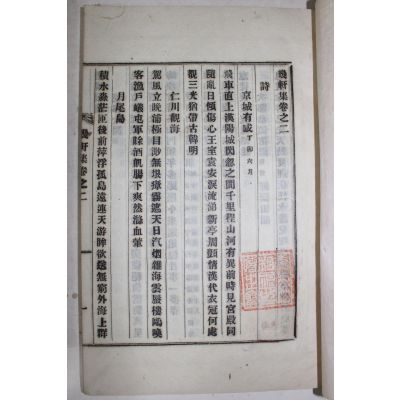 幾軒集卷之二
詩
京城有感 丁卯六月
飛車直上漢陽城閃忽之間千里程山河有異前時見宮殿同
隨亂日傾傷心王室袁安淚流涕新亭周顗情漢代衣冠何處
觀三光猶帶古韓明
仁川觀海
駕風立晚浦極目渺無垠瘴霧遮天日汽烟雜海雲蜃樓鷗喚
客漁戶蟻屯軍賒酒飢腸下爽然滋血葷
月尾島
積水淼茫匝後前萍浮孤島遠連天游眸欲騁無窮外海上群
幾軒集卷之二
一